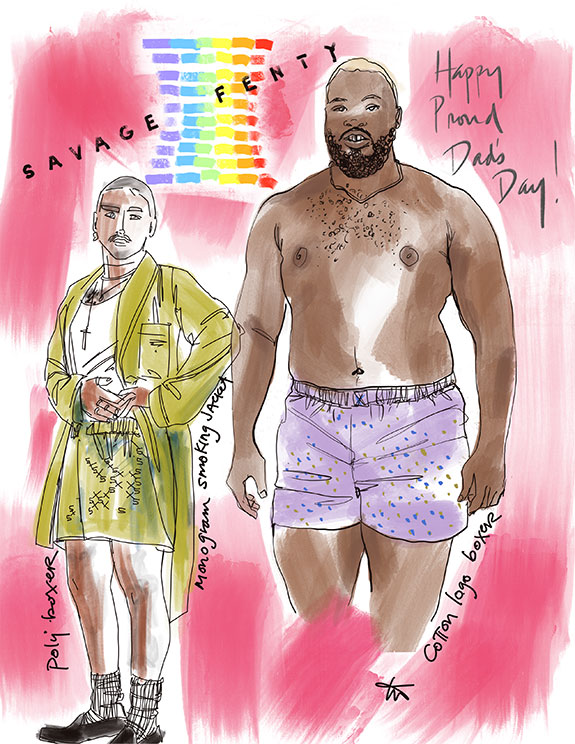 SAVAGE FENTY
Happy
Proud
Dad's
Day!
monogram smoking jacket
poly boxer
cotton logo boxer